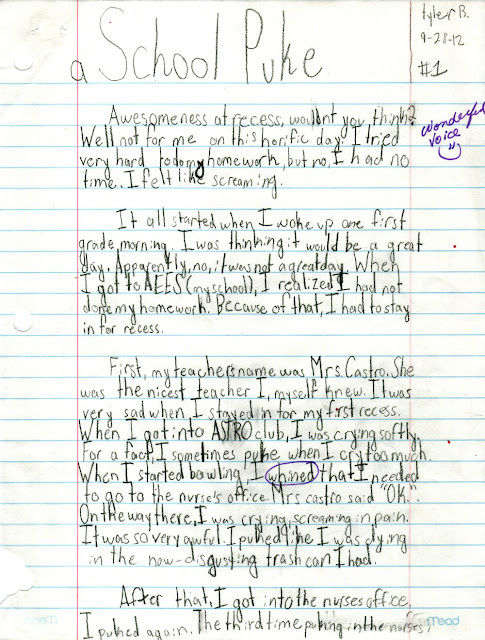 a School Puke
Tyler B.
9-28-12
#1
Awesomeness at recess, wouldnt you think?
Well not for me on this horific day. I tried
very hard to do my homework, but no, I had no
time. I felt like screaming.
Wonderful
Voice
It all started when I woke up one first
grade, morning. I was thinking it would be a great
day. Apparently, no, it was not a great day. When
I got to AEES (my school), I realized I had not
done my homework. Because of that, I had to stay
in for recess.
First, my teachers name was Mrs. Castro. She
was the nicest teacher I, myself knew. It was
very sad when I stayed in for my first recess.
When I got into ASTRO club, I was crying softly.
For a fact, I sometimes puke when I cry too much.
When I started bawling, I whined that I needed
to go to the nurse's office. Mrs castro said "OK."
On the way there, I was crying, screaming in pain.
It was so very awful. I puked like I was dying
in the now-disgusting trash can I had.
After that, I got into the nurses office.
I puked again. The third time puking in the nurses
Mead